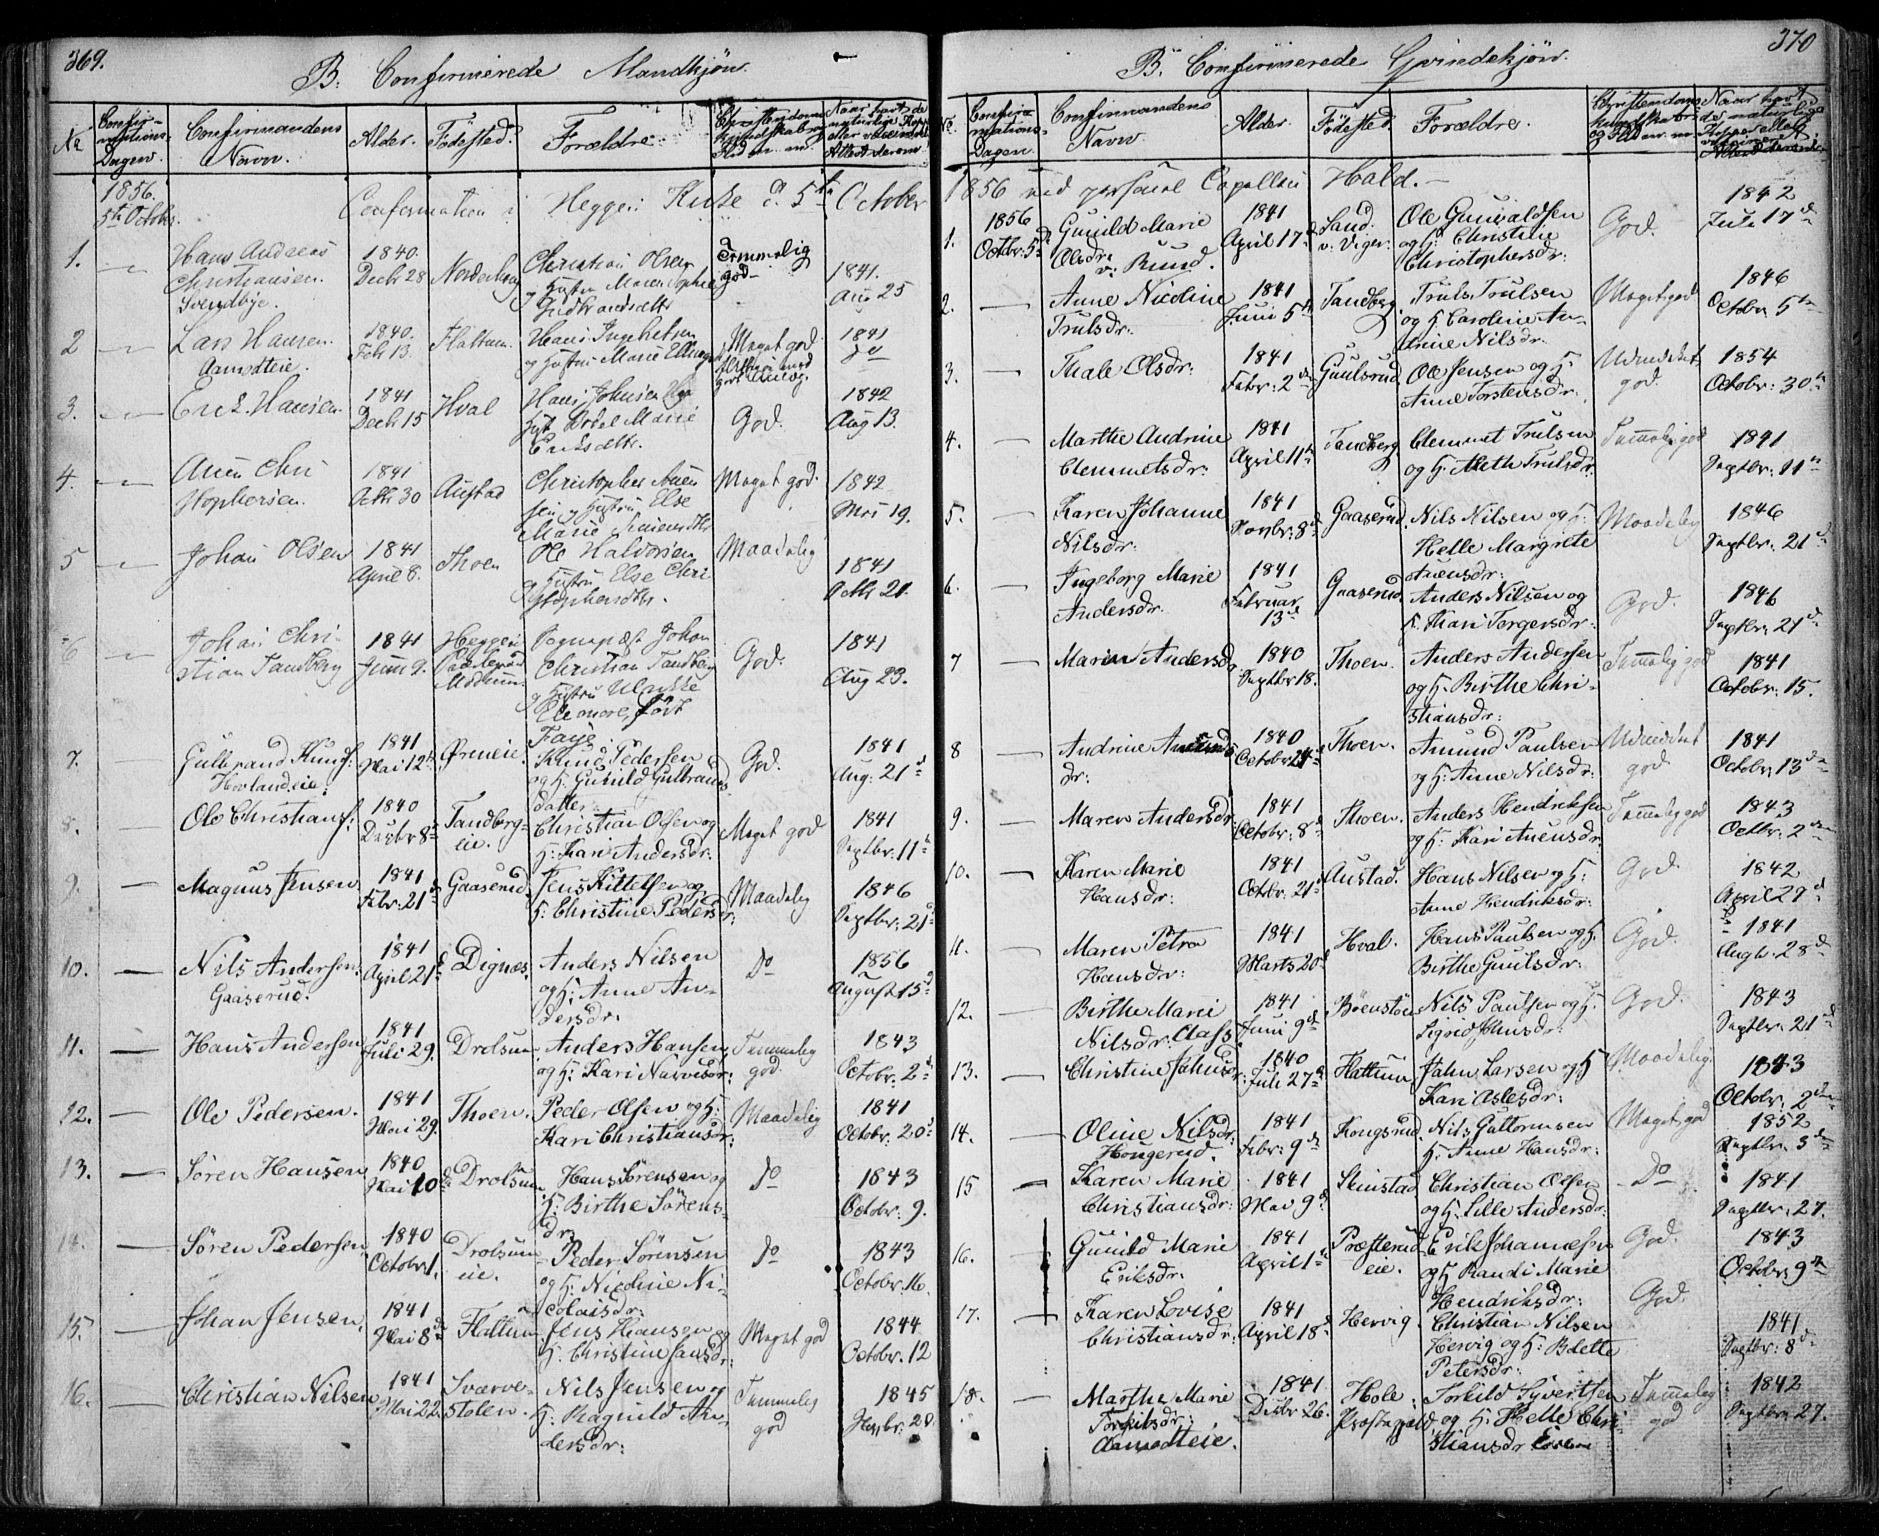 369.
B. Confirmerede Mandkjøn.
No
Confirmations Dagen.
Confirmandens Navn.
Alder.
Fødested.
Forældre.
Christendoms Kundskab og Flid m. m.
Naar havt de naturlige Kopper eller vaccineret Attest derom
1856. 5te October. Confirmation i Heggen Kirke d. 5te October
1. Hans Andreas Christiansen Svendbye. 1840. Decbr 28 Christian Olsen og Hustru Maren Sophie Temmelig god 1841. Aug 25
2 Lars Hansen. Aamodteie. 1840. Febr 13. Flattum. Hans Ingebretsen og Hustru Marie Meget god 1841
3. Erik Hansen 1841 Decbr 15 Hval Hans Johnsen Hust Bodel Marie Eriksdtr. God. 1842 Aug 13.
4. Auen Christophersen. 1841 Octbr 30 Austad Christopher Auensen og Hustru Else Marie Meget god. 1842 Mai 19.
5 Johan Olsen 1841 April 8. Thoen Ole Halvorsen og Hustru Else Christophersdtr. Maadelig 1841 Octbr 21.
6 Johan Christian Tandberg 1841 Juni 9. Heggen Modum. Sognepræst Johan Christian Tandberg og Hustru Ulrikke Eleonore, født Faye. God. 1841 Aug 23.
7. Gulbrand Knuds: Hovlandeie. 1841 Mai 12te Ørneie. Knud Pedersen og H: Gunild Gulbrandsdatter. God. 1841 Aug: 21d
8. Ole Christians: 1840 Decbr 8d Tandbergeie. Christian Olsen og H: Kari Andersdr. Meget god 1841 Septbr: 11te
9. Magnus Jensen 1841 Febr: 21d Gaaserud Jens Kittelsen og H: Christine Pedersdr: Maadelig 1846 Septbr: 21d
10. Nils Andersen. Gaaserud. 1841 April 21d Dignæs. Anders Nilsen og H: Anne Andersdr. Do 1856 August 15d
11. Hans Andersen 1841 Juli 29. Drolsum. Anders Hansen og H: Kari Narvesdr: Temmelig god. 1843 Octobr. 2d
12. Ole Pedersen. 1841 Mai 29. Thoen. Peder Olsen og H: Kari Christiansdr: Maadelig 1841 Octobr. 20d
13. Søren Hansen 1840 Mai 10d Drolsum Hans Sørensen og H: Birthe Sørensdr. Do 1843 Octobr: 9.
14. Søren Pedersen 1840 Octobr 1. Drolsumeie. Peder Sørensen og H: Nicoline Nicolaisdr: Do 1843 Octobr. 16.
15. Johan Jensen. 1841 Mai 8d Flattum Jens Hansen og H: Christine Jansdr: Meget god 1844 Octobr. 12
16. Christian Nilsen 1841 Mai 22. Sværvestolen. Nils Jensen og H: Ragnild Andersdr: Temmelig god 1845
370
B. Confirmerede Qvindekjøn.
Confirmations Dagen.
Confirmandens Navn
Alder.
Fødested.
Forældre.
Christendoms Kundskaber og Flid m. m.
Naar havt de naturlige Kopper eller vaccineret Attest derom
1856 ved personel Capellan Hald.
1. 1856 Octbr: 5d Gunild Marie Olsdr. v. Rund. 1841 April 17d Sand. v. Viger. Ole Gunvaldsen og H: Christine Christophersdr: God. 1842 Juli 17d
2. Anne Nicoline Trulsdr: 1841 Juni 5te Tandberg Truls Trulsen og H. Caroline Antrine Nilsdr. Meget god 1846 Octobr 5te
3. Thale Olsdr: 1841 Febr: 2d Guulsrud Ole Jensen og H: Anne Torstensdr. Udmærket god. 1854 Octobr: 30te
4. Marthe Andrine Clemmetsdr: 1841 April 11te Tandberg Clemmet Trulsen og H. Aleth Trulsdr: Temmelig god 1841 Septbr. 11te
5. Karen Johanne Nilsdr: 1841 Novbr: 8d Gaaserud Nils Nilsen og H: Helle Margrete Auensdr: Maadelig 1846 Septbr: 21d
6. Ingeborg Marie Andersdr. 1841 Februar 13d Gaaserud Anders Nilsen og H. Kari Torgersdr: God. 1846 Septbr. 21d
7 Maren Andersdr 1840 Septbr 18. Thoen. Anders Andersen og H. Birthe Christiansdr: Temmelig god 1841 Octobr. 15.
8 Andrine 1840 Octobr 24d Thoen. Amund Paulsen og H: Anne Nilsdr: Udmærket god 1841 Octobr. 13d
9. Maren Andersdr. 1841 Octobr: 8d Thoen. Anders Hendriksen og H: Kari Auensdr: Temmelig god 1843 Octbr. 2den
10. Karen Marie Hansdr: 1841 Octbr. 21d Austad. Hans Nilsen og H: Anne Hendriksdr: God. 1842 April 29d
11. Maren Petra Hansdr: 1841 Marts 20d Hval. Hans Paulsen og H. Birthe Guulsdr: God. 1841 Augt. 28d
12. Birthe Marie Nilsdr. 1841 Juni 9d Nils Paulsen og H: Sigrid Johnsdr: God. 1843 Septbr 21d
13. Christine Johnsdr: 1840 Juli 27d Flattum John Larsen og H Kari Aslesdr: Maadelig 1843 Octobr. 2den
14. Oline Nilsdr: Hougerud. 1841 Febr: 9d Kongsrud Nils Guttormsen H: Anne Hansdr: Meget god 1852 Septbr. 3d
15 Karen Marie Christiansdr: 1841 Mai 9d Skinstad Christian Olsen og H: Lille Andersdr: Do 1841 Septbr. 27.
16. Gunild Marie Eriksdr. 1841 April 1d Præsterudeie. Erik Johannesen og H Randi Marie Hendriksdr: God. 1843 Octobr: 9de
17. Karen Lovise Christiansdr: 1841 April 18d Hervig. Christian Nilsen Hervig og H: Petersdr: God. 1841 Septbr: 8d
18. Marthe Marie Torkildsdr: Aamodteie. 1841 Decbr 26. Hole Præstegjeld Torkild Syvertsen og H: Helle Christiansdr Temmelig god 1842 Septbr: 27.